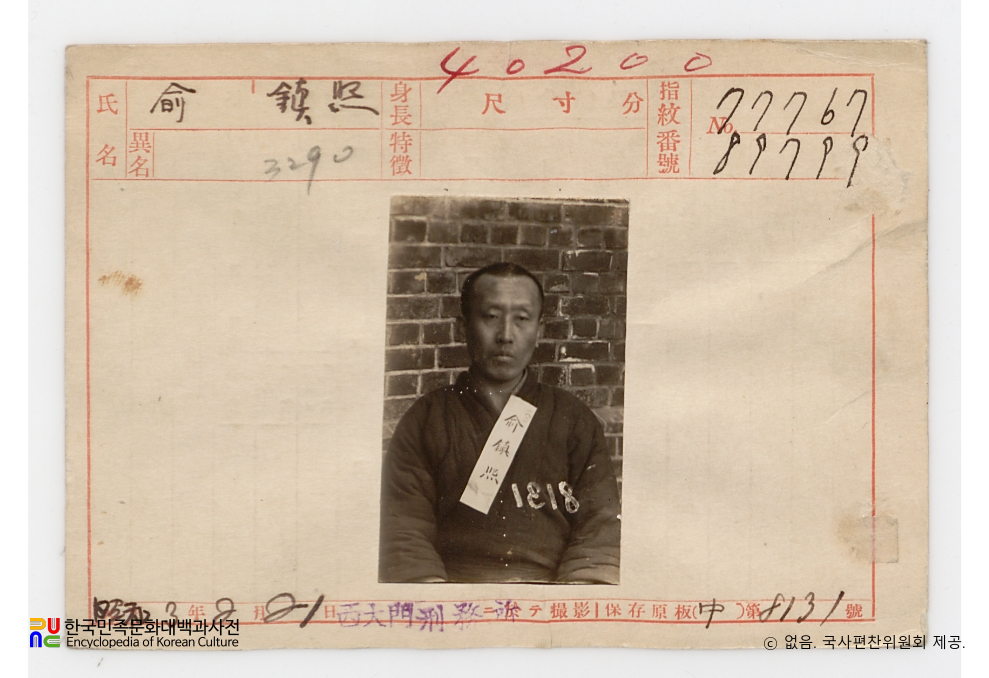 40200
氏名 俞 鎮 熙 身長 尺 寸 分 指紋番號 No. 77767
異名 3290 特徵 89799
俞鎮熙
1818
昭和 3年 2月 21日 西大門刑務所ニ於テ撮影 保存原板(中)第8131號
한국민족문화대백과사전
Encyclopedia of Korean Culture
ⓒ 없음. 국사편찬위원회 제공.